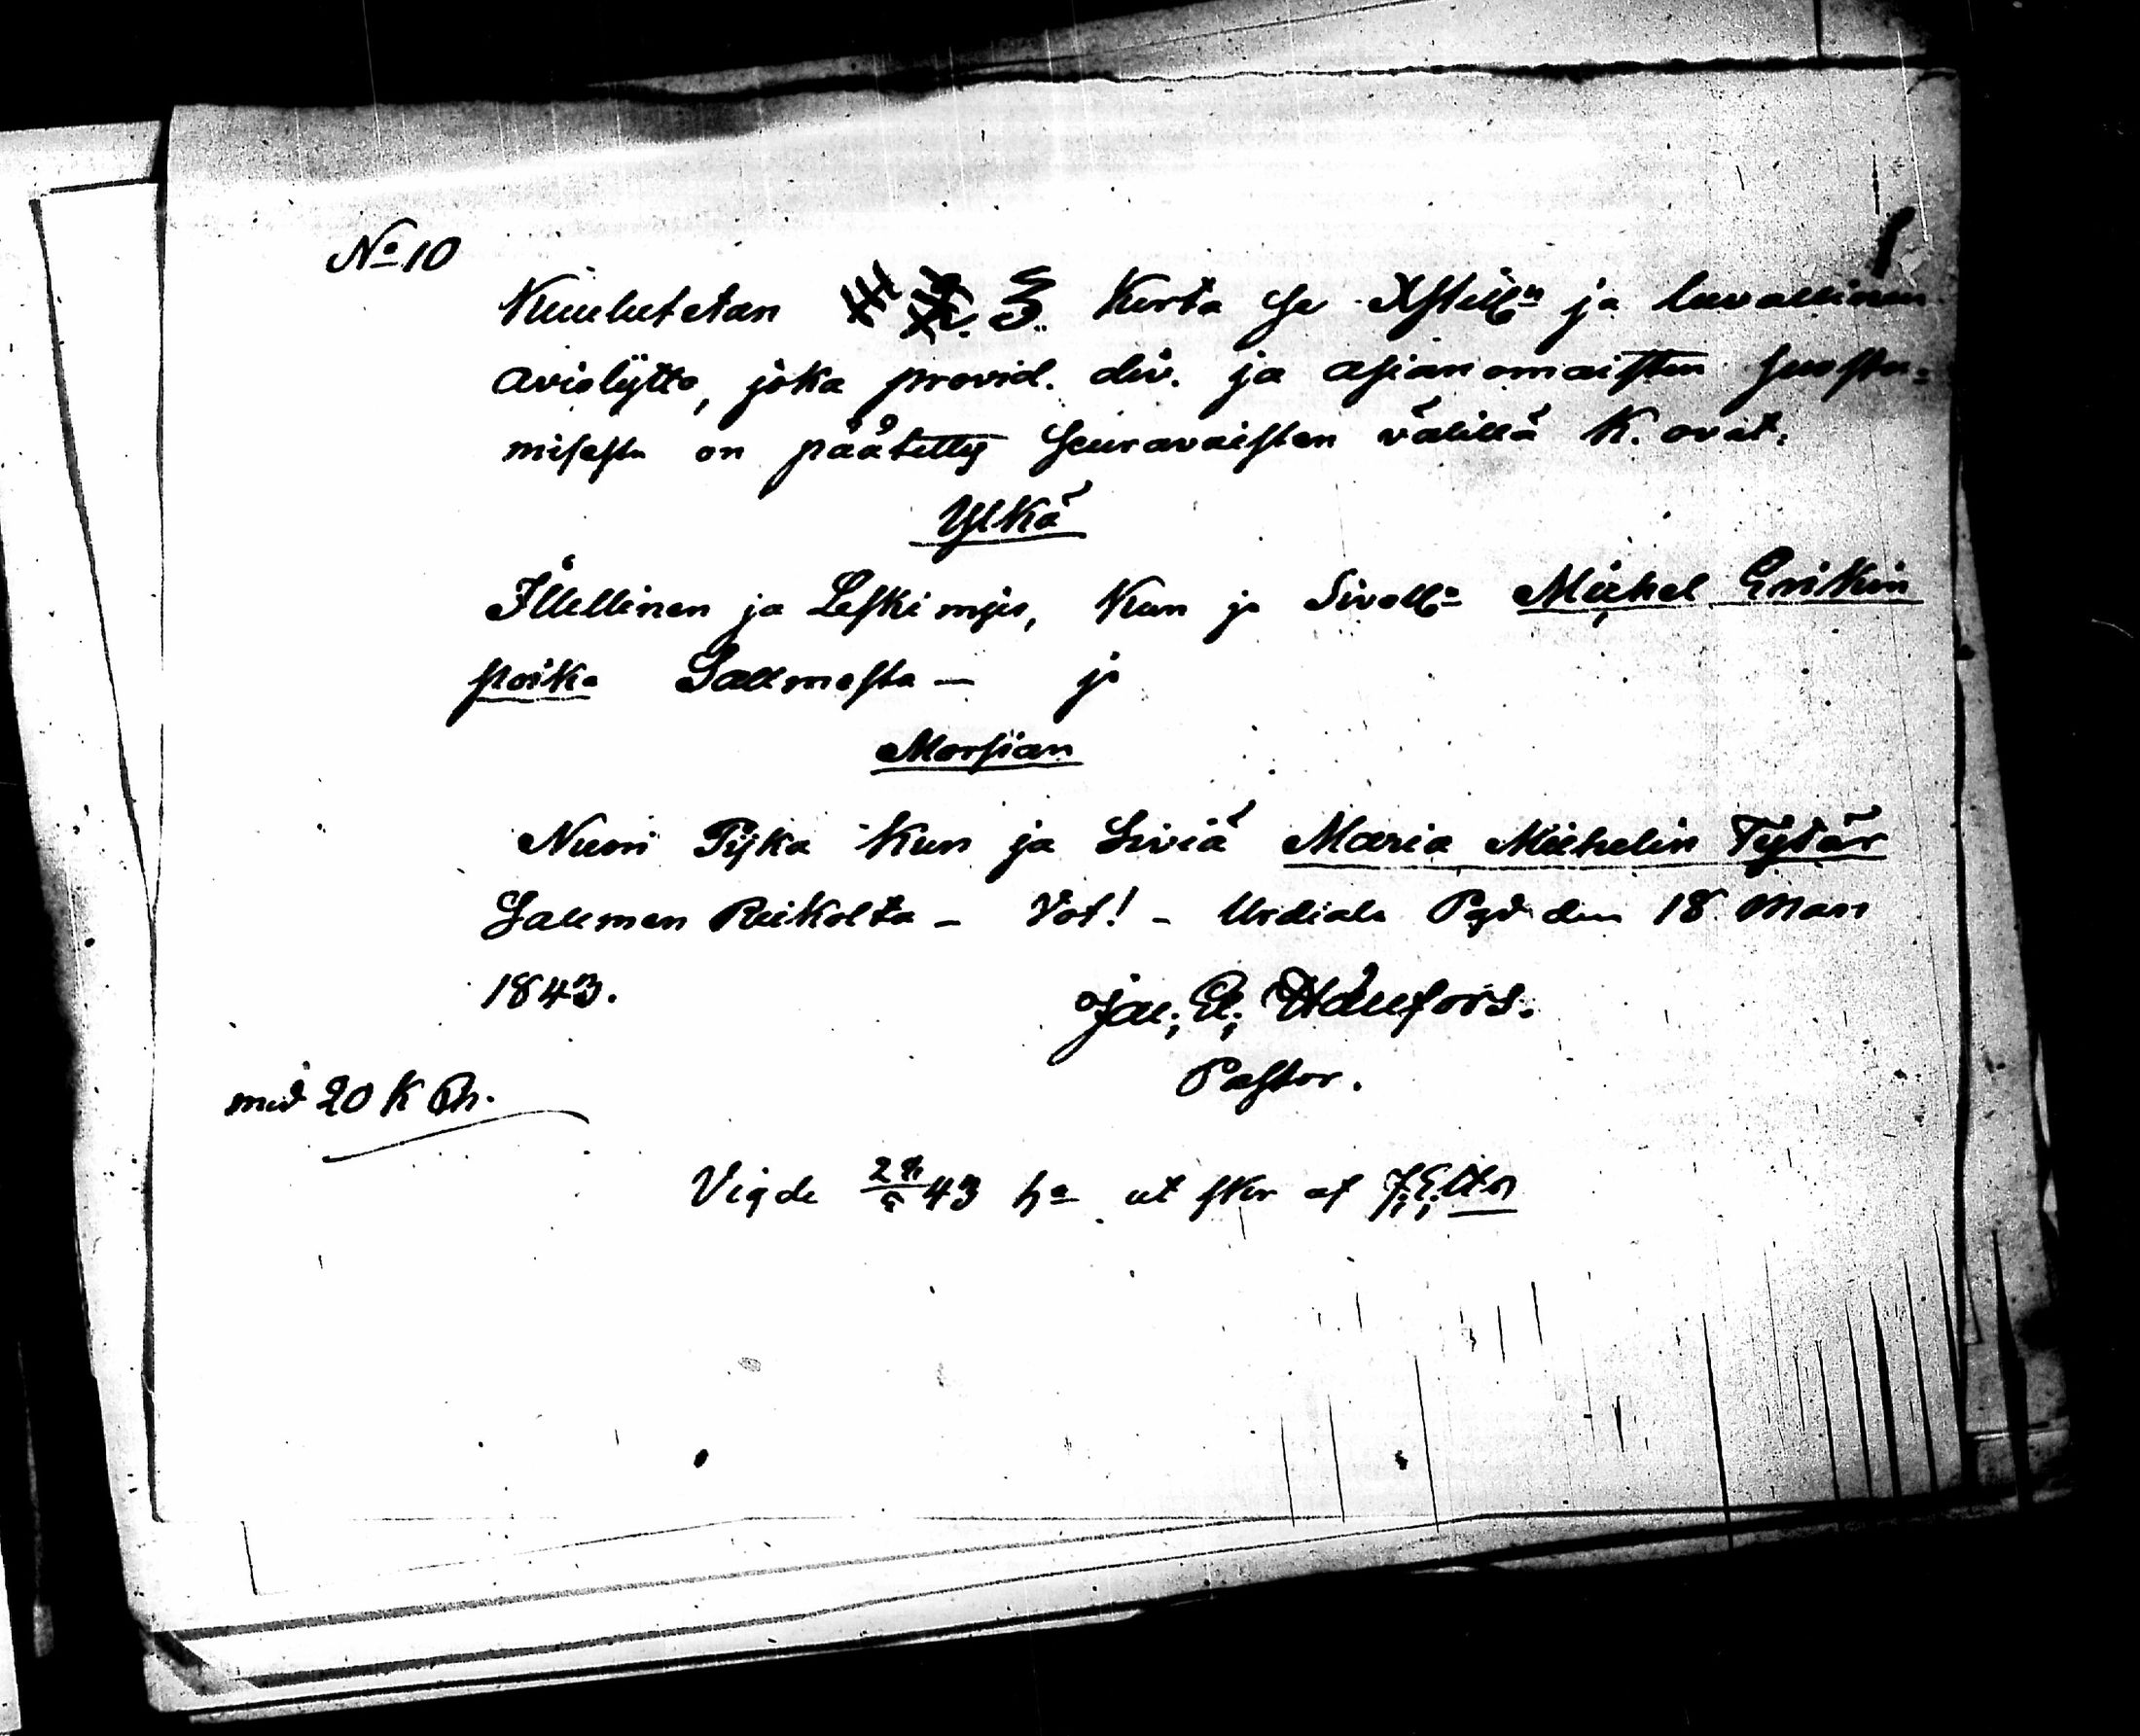 No 10
Kuulutetan 3. Kerta se Xstilln ja luvallinen
avioliytto, joka provid. div. ja asianomaisten suostu-
misesta on päätetty seuravaisten välillä K. ovat.
Ylkä
Itellinen ja Leskimjes, Kun ja Sivoll. Michel Erikin
poika Salmesta — ja
Morsian
Nuori Pijka Kun ja Siviä Maria Michelin Tytär
Salmen Reikolta — Vot! — Urdiala Pgd den 18 Mars
1843.
Jac. E. Hällfors.
Pastor.
med 20 K Rh.
Vigde 43 ha ut skr af